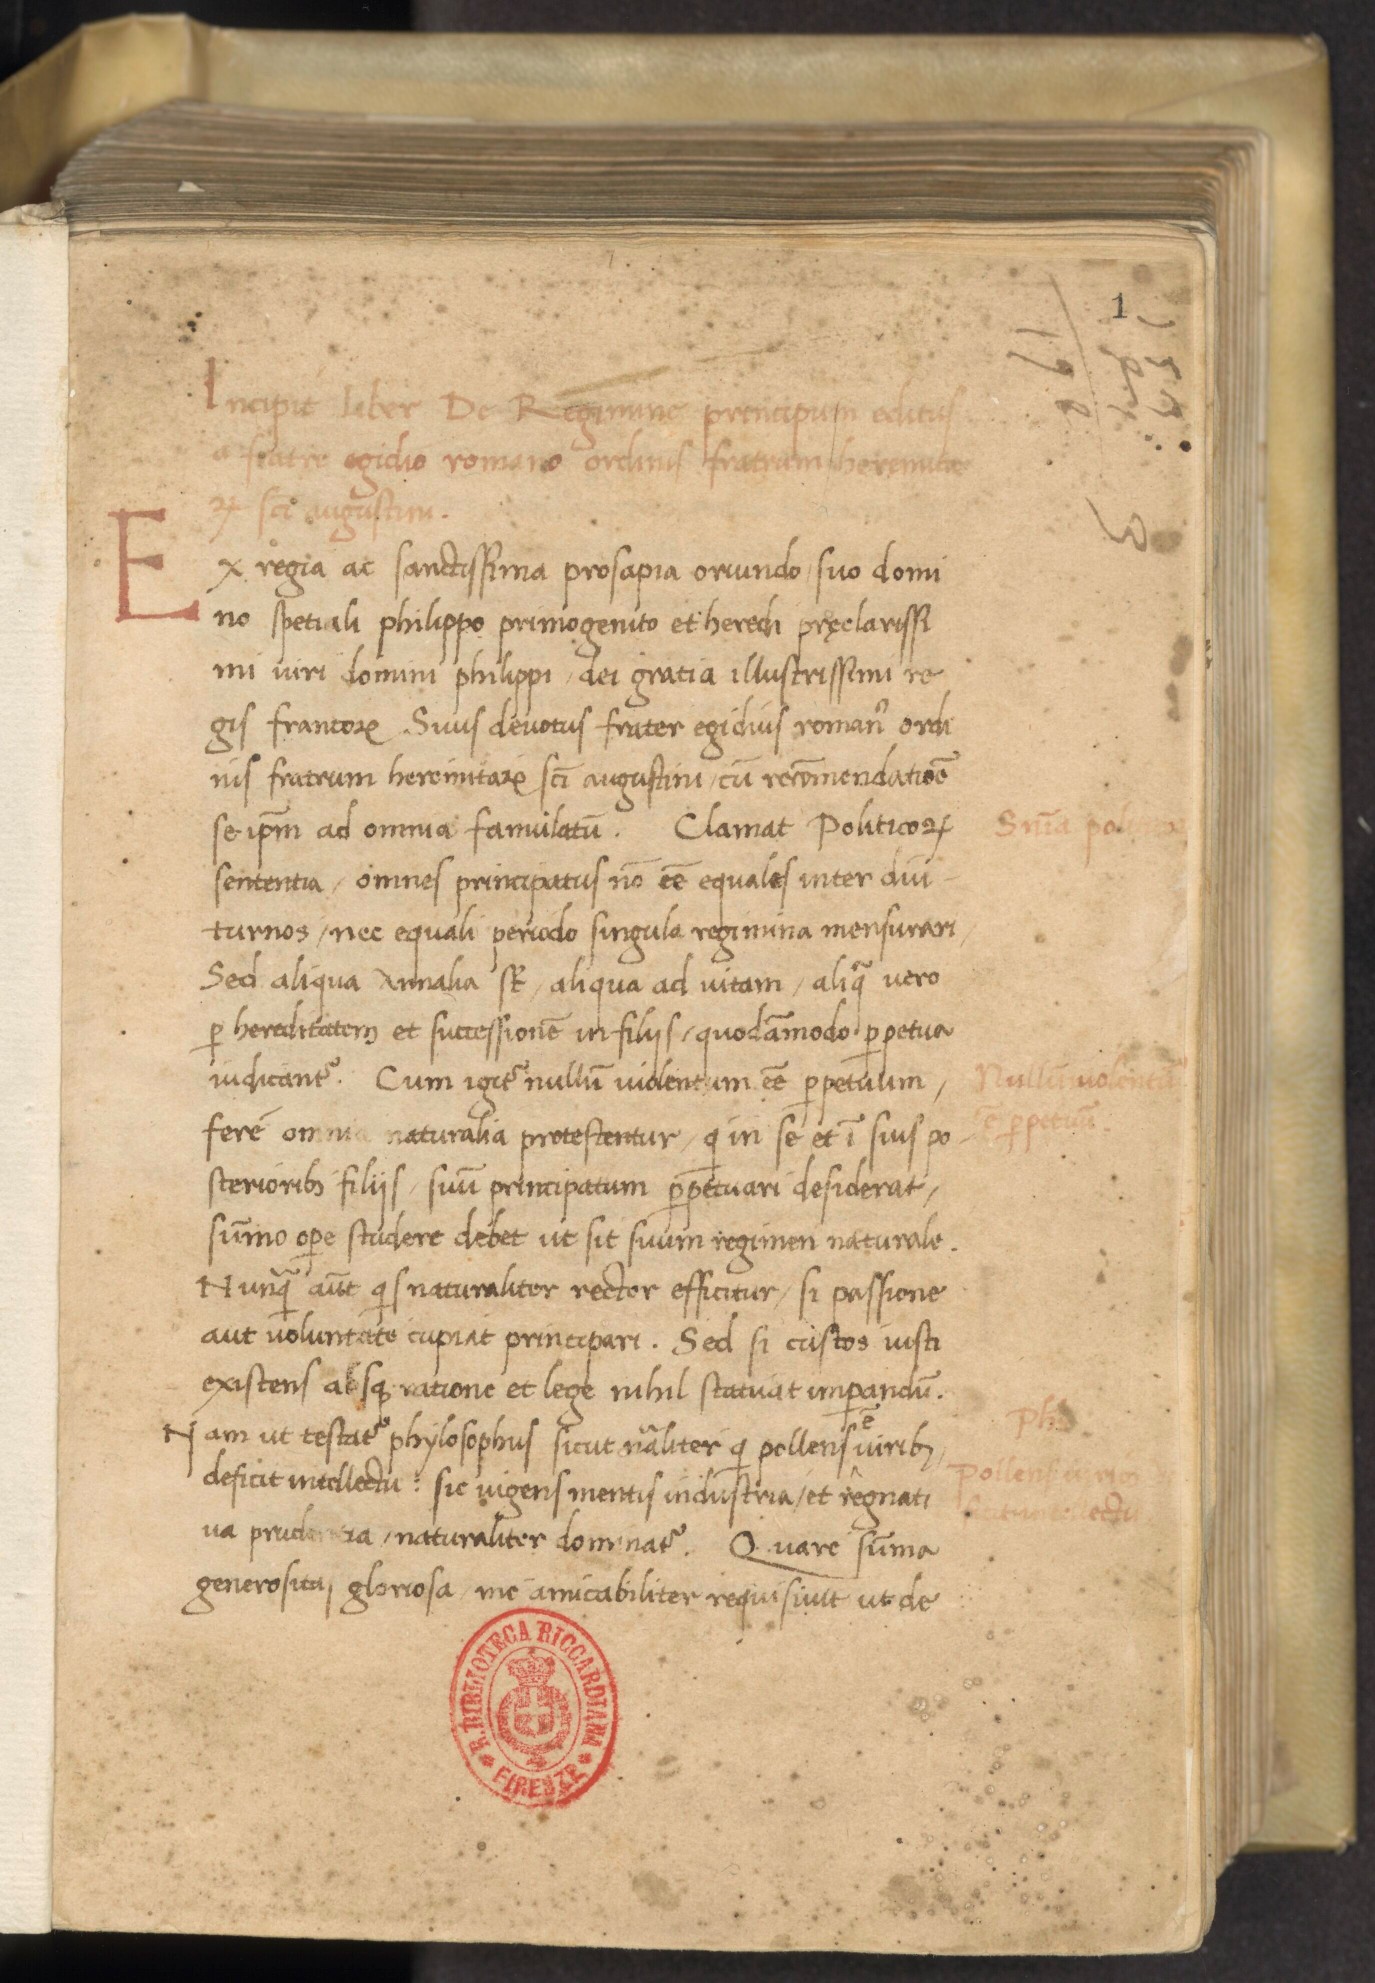 1
Incipit liber De Regimine principum editus
a fratre egidio romano ordinis fratrum heremita
ꝝ sci augustini.
Ex regia ac sanctissima prosapia oriundo / suo domi
no spetiali philippo primogenito et heredi pręclarissi
mi uiri domini philippi / dei gratia illustrissimi re
gis francoꝝ. Suus deuotus frater egidius romanꝰ ordi
nis fratrum heremitaꝝ sc̄i augustini / cū recōmendatiōe
se ip̄m ad omnia famulatū. Clamat Politicoꝝ
Sn̄ia
sententia / omnes principatus nō eē equales inter diu
turnos / nec equali periodo singula regimina mensurari /
Sed aliqua Annalia st̄ / aliqua ad uitam / aliq̄ uero
ꝑ hereditatem et successionē in filijs / quodāmodo ꝑpetua
iudicantᷣ. Cum igitᷣ nullū uiolentum eē ꝑpetuum /
Nullū uiolentū
ē ꝑpetuū.
ferē omnia naturalia protestentur / qͥ in se et ī suis po
sterioribꝫ filijs / suū principatum ꝑpetuari desiderat /
sūmo oꝑe studere debet ut sit suum regimen naturale.
Nunq̄ aūt qͥs naturaliter rector efficitur / si passione
aut uoluntate cupiat principari. Sed si custos iusti
existens absqꝫ ratione et lege nihil statuat imꝑandū.
Ph.
Nam ut testatᷣ phylosophus sicut nāliter qͥ pollens ē uiribꝫ /
Pollens uiribꝫ
deficit intellectu: sic uigens mentis industria / et regnati
intellectu
ua prudentia / naturaliter dominatᷣ. Quare sūma
generositas gloriosa / me amicabiliter requisiuit ut de
R. BIBLIOTECA RICCARDIANA
FIRENZE